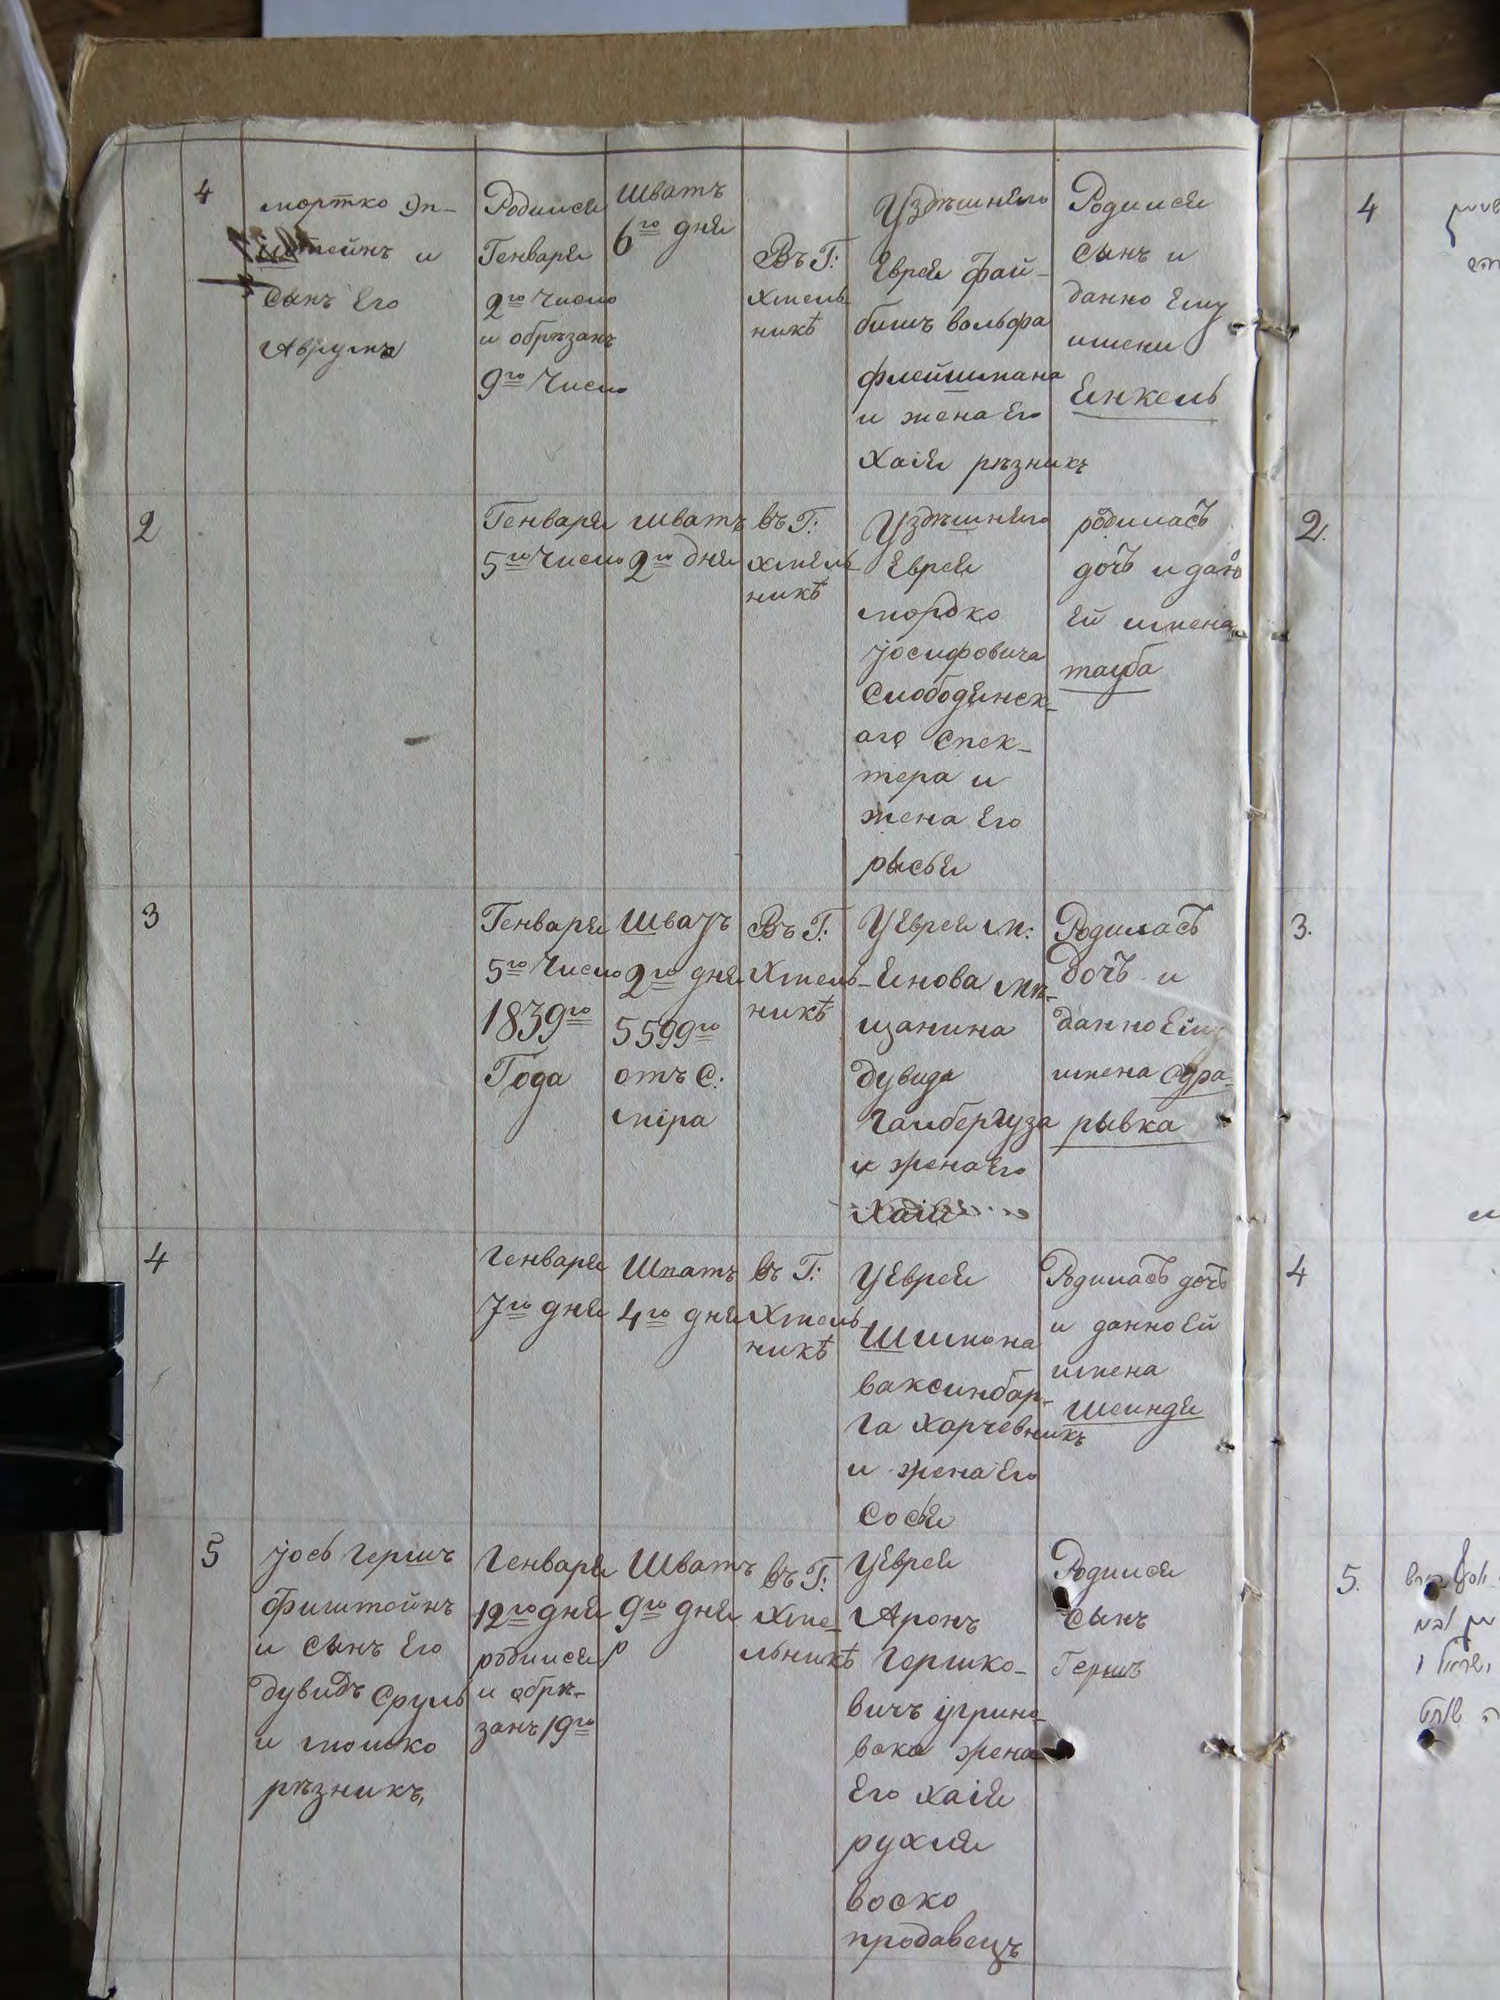 4
мортко Эп-
штейнъ и
сынъ Его
Аврумъ
Родился
Генваря
2го Число
и обрѣзанъ
9го Число
Шватъ
6го дня
Въ Г:
Хмель
никѣ
У здѣшняго
Еврея фай-
бишъ вольфа
флейшмана
и жена Его
Хаія рѣзникъ
Родился
сынъ и
данно Ему
имени
Еинкель
2
Генваря
5го Число
шватъ
2го дня
въ Г:
хмель
никѣ
У здѣшняго
Еврея
мордко
Јосифовича
Слободянск-
аго спек-
тера и
жена Его
рысья
родилась
дочъ и дано
Ей имена
тауба
3
Генваря
5го Число
1839го
Года
Шватъ
2го дня
5599го
отъ С:
міра
Въ Г:
Хмель-
никѣ
У Еврея м:
Енова мѣ-
щанина
дувида
и жена Его
Хаія
Родилась
дочъ и
данно Ей
имена Сура
рывка
4
Генваря
7го дня
Шватъ
4го дня
въ Г:
Хмель
никѣ
У Еврея
Шимона
ваксинбар-
га харчевникъ
и жена Его
Сося
Родилась дочъ
и данно Ей
имена
Шеиндя
5
Јось Гершъ
фиштейнъ
и сынъ Его
дувидъ Сруль
и мошко
рѣзникъ,
Генваря
12го дня
родился
и обрѣ-
занъ 19го
Шватъ
9го дня
въ Г:
Хме-
льникѣ
У Еврея
Аронъ
Гершко-
вичъ
жена
Его Хаія
рухля
воско
продавецъ
Родился
сынъ
Гершъ
4
2.
3.
4
5.